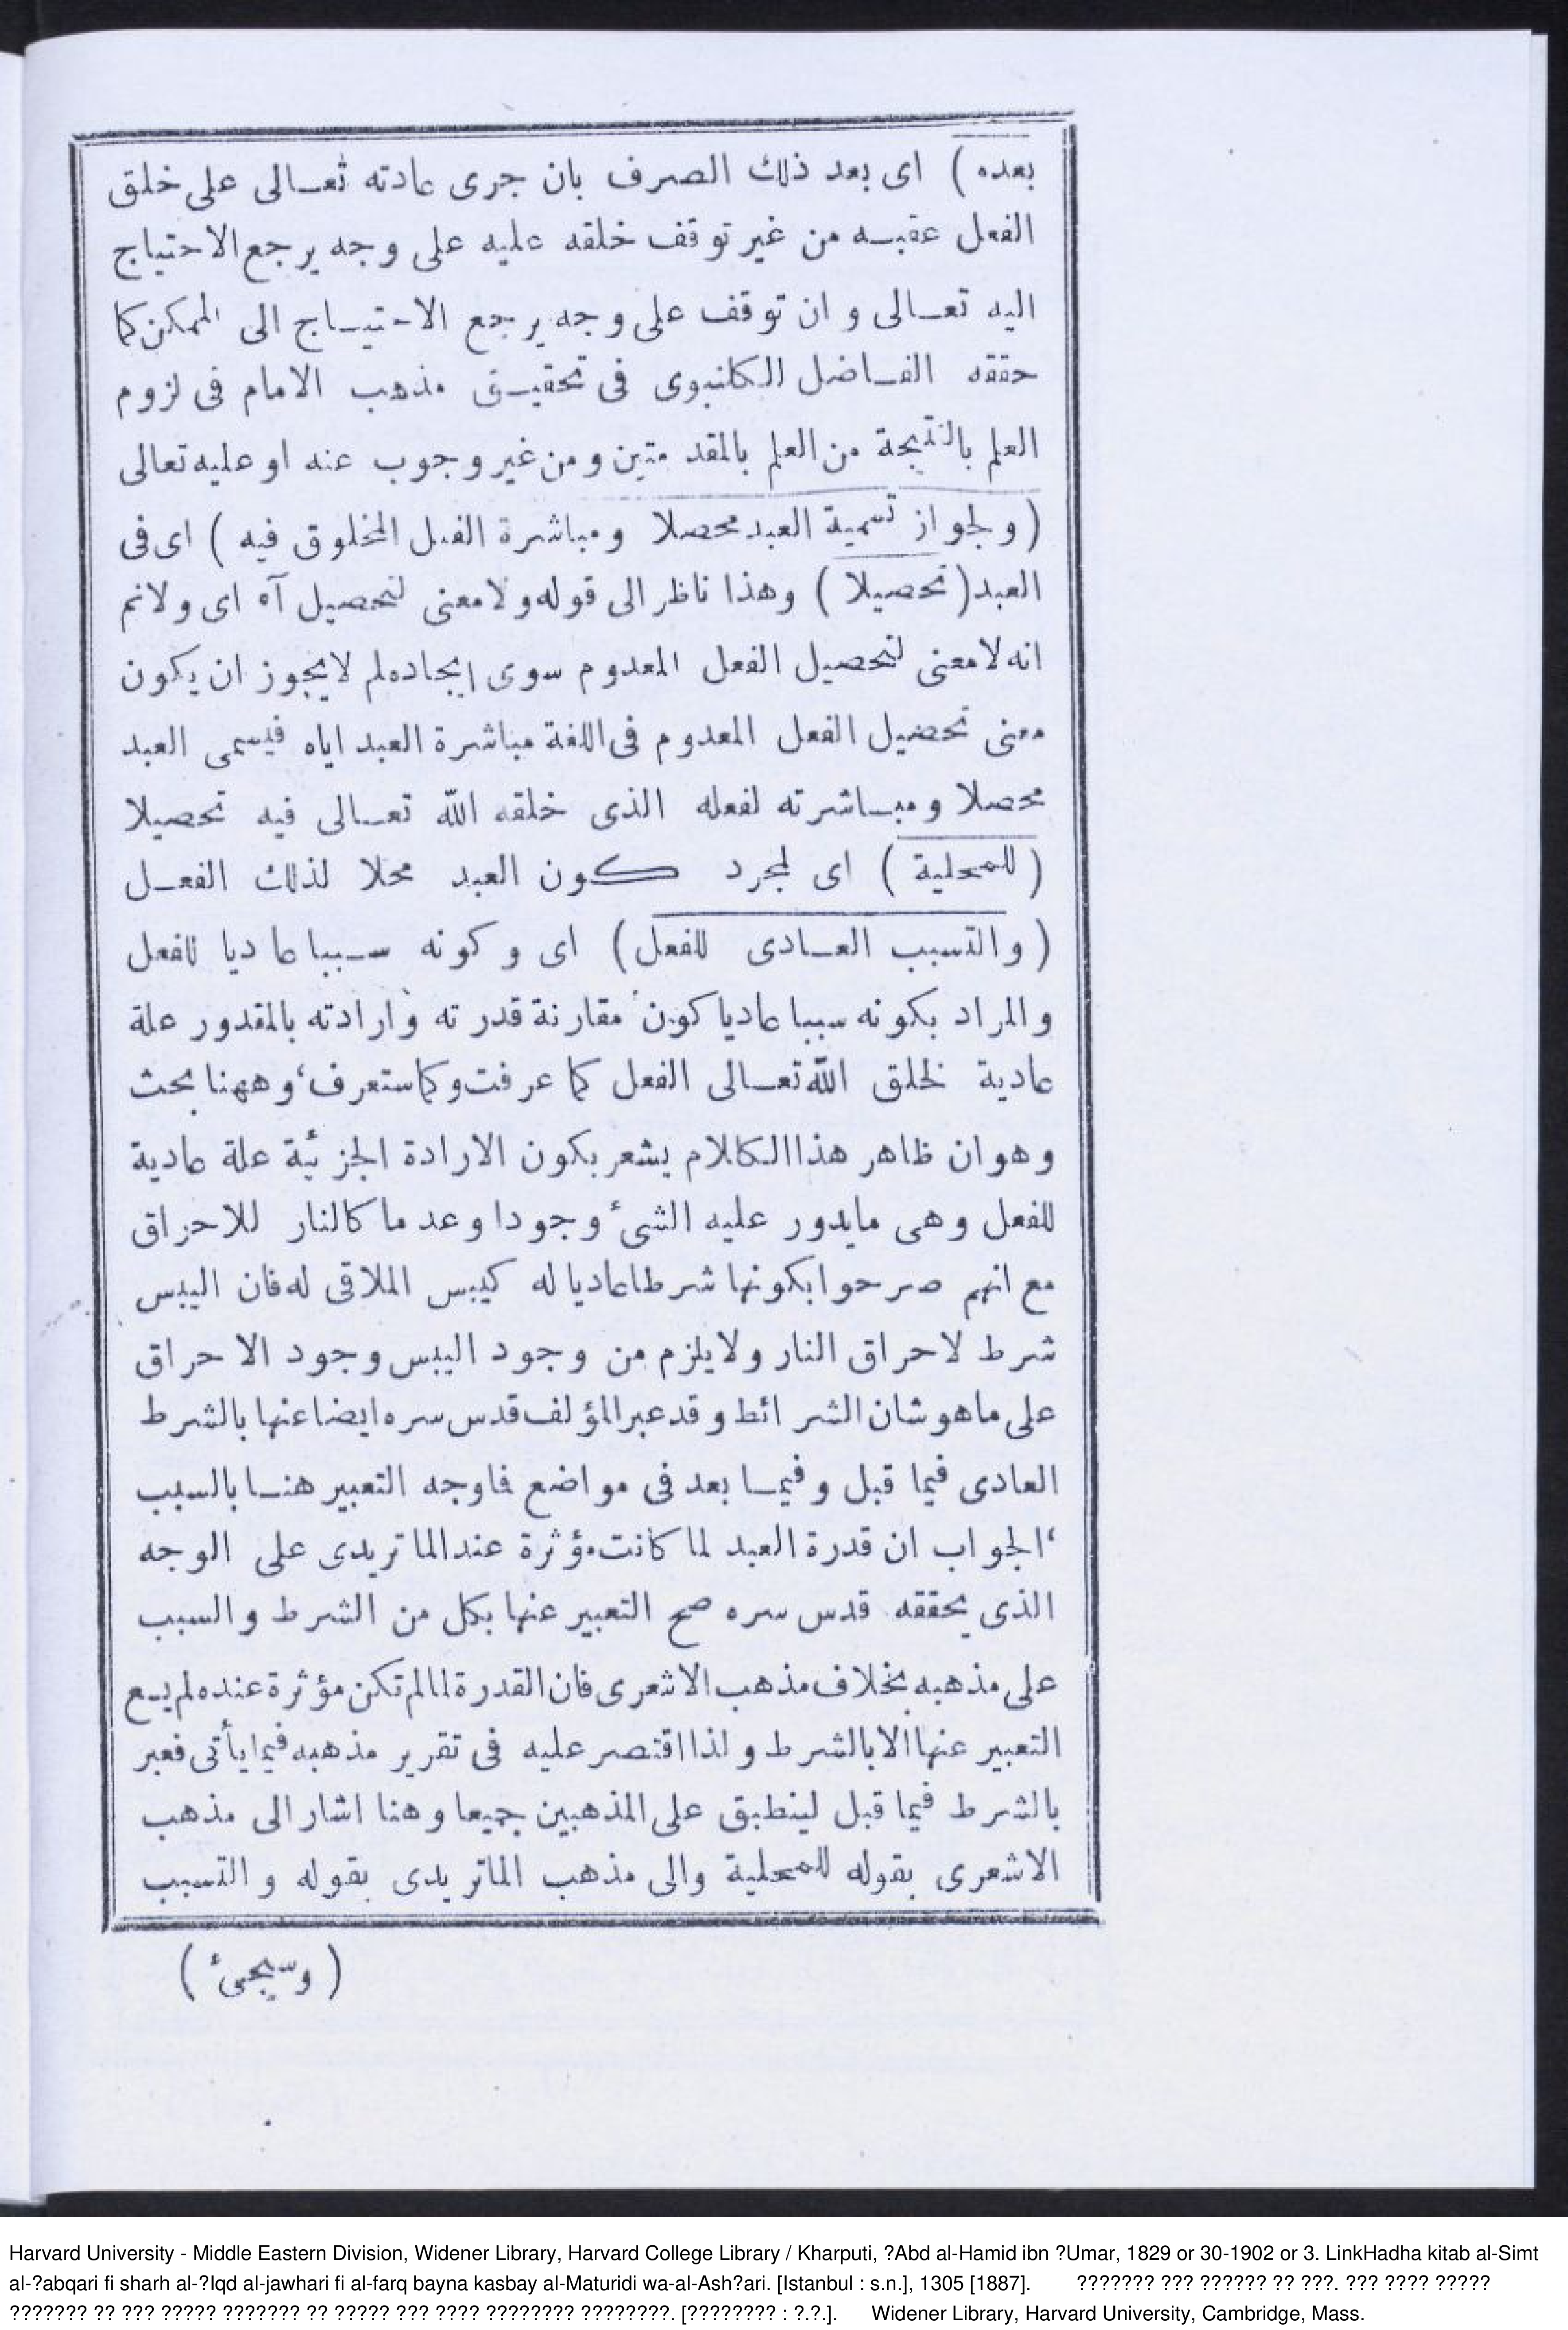 بعده) اى بعد ذلك الصرف بان جرى عادته تعالى على خلق
الفعل عقبيه من غير توقف خلقه عليه على وجه يرجع الاحتياج
اليه تعالى وان توقف على وجه يرجع الاحتياج الى الممكن كما
حققه الفاضل الكلنبوى فى تحقيق مذهب الامام فى لزوم
العلم بالنتيجة من العلم بالمقدمتين ومن غير وجوب عنه او عليه تعالى
(ولجواز تسمية العبد محصلا ومباشرة الفعل المخلوق فيه) اى فى
العبد (تحصيلا) وهذا ناظر الى قوله ولا معنى لتحصيل آه اى ولانم
انه لا معنى لتحصيل الفعل المعدوم سوى ايجاده لم لا يجوز ان يكون
معنى تحضيل الفعل المعدوم فى اللغة مباشرة العبد اياه فيسمى العبد
محصلا ومباشرته لفعله الذى خلقه الله تعالى فيه تحصيلا
(للمحلية) اى لمجرد كون العبد محلا لذلك الفعل
(والتسبب العادى للفعل) اى وكونه سببا عاديا للفعل
والمراد بكونه سببا عاديا كون مقارنة قدرته وارادته بالمقدور علة
عادية لخلق الله تعالى الفعل كما عرفت وكما ستعرف، وههنا بحث
وهو ان ظاهر هذا الكلام يشعر بكون الارادة الجزئية علة عادية
للفعل وهى ما يدور عليه الشئ وجودا وعدما كالنار للاحراق
مع انهم صرحوا بكونها شرطا عاديا له كيبس الملاقى له فان اليبس
شرط لاحراق النار ولا يلزم من وجود اليبس وجود الاحراق
على ما هو شان الشرائط وقد عبر المؤلف قدس سره ايضا عنها بالشرط
العادى فيما قبل وفيما بعد فى مواضع فاوجه التعبير هنا بالسبب
،الجواب ان قدرة العبد لما كانت مؤثرة عند الماتريدى على الوجه
الذى يحققه قدس سره صح التعبير عنها بكل من الشرط والسبب
على مذهبه بخلاف مذهب الاشعرى فان القدرة لما لم تكن مؤثرة عنده لم يسع
التعبير عنها الا بالشرط ولذا اقتصر عليه فى تقرير مذهبه فيما يأتى فعبر
بالشرط فيما قبل لينطبق على المذهبين جميعا وهنا اشار الى مذهب
الاشعرى بقوله للمحلية والى مذهب الماتريدى بقوله والتسبب
(وسيجئ)
Harvard University - Middle Eastern Division, Widener Library, Harvard College Library / Kharputi, ?Abd al-Hamid ibn ?Umar, 1829 or 30-1902 or 3. LinkHadha kitab al-Simt
al-?abqari fi sharh al-?Iqd al-jawhari fi al-farq bayna kasbay al-Maturidi wa-al-Ash?ari. [Istanbul : s.n.], 1305 [1887]. ??????? ??? ?????? ?? ???. ??? ???? ?????
??????? ?? ??? ????? ??????? ?? ????? ??? ???? ???????? ????????. [???????? : ?.?.]. Widener Library, Harvard University, Cambridge, Mass.